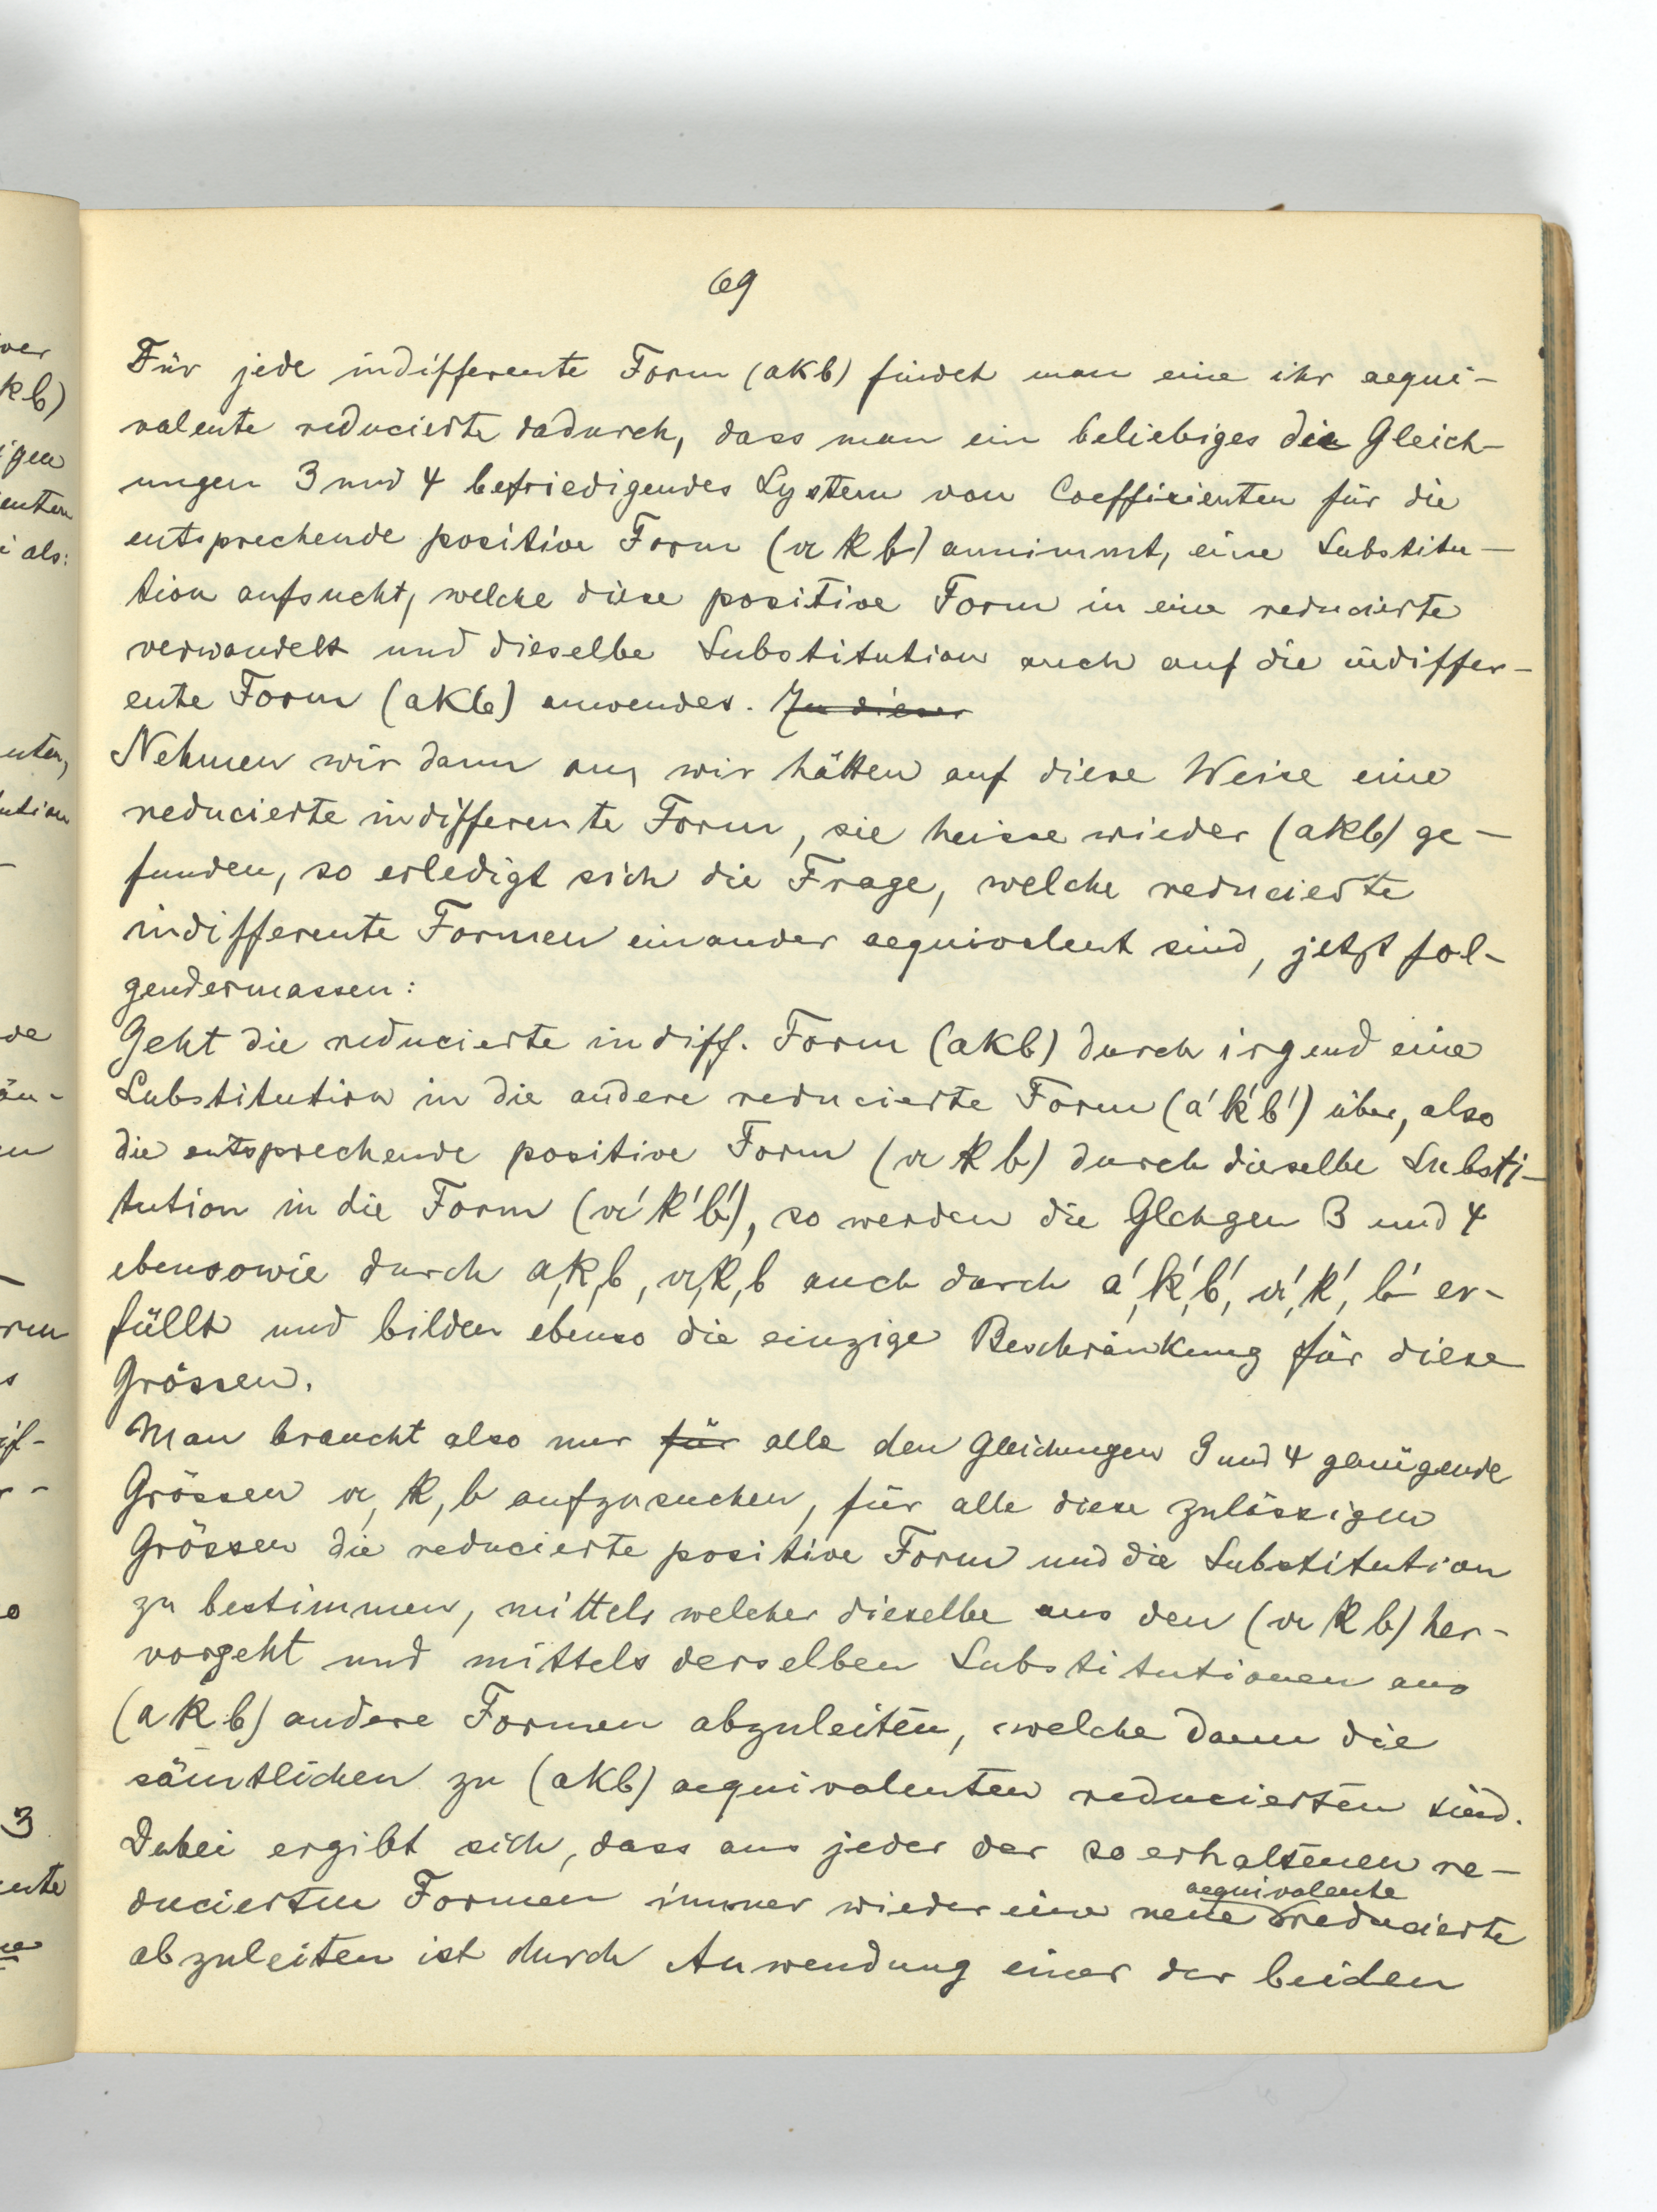 69
Für jede indifferente Form (akb) findet man eine ihr aequi-
valente reducierte dadurch, dass man ein beliebiges die Gleich-
ungen 3 und 4 befriedigendes System von Coefficienten für die
entsprechende positive Form (𝔞 𝔨 𝔟) annimmt, eine Substitu-
tion aufsucht, welche diese positive Form in eine reducierte
verwandelt und dieselbe Substitution auch auf die indiffer-
ente Form (akb) anwendet. In dieser
Nehmen wir dann an, wir hätten auf diese Weise eine
reducierte indifferente Form, sie heisse wieder (akb) ge-
funden, so erledigt sich die Frage, welche reducierte
indifferente Formen einander aequivalent sind, jetzt fol-
gendermassen:
Geht die reducierte indiff. Form (akb) durch irgend eine
Substitution in die andere reducierte Form (a'k'b') über, also
die entsprechende positive Form (𝔞 𝔨 𝔟) durch dieselbe Substi-
tution in die Form (𝔞'𝔨'𝔟'), so werden die Glchgen 3 und 4
ebensowie durch a,k,b, 𝔞,𝔨,𝔟 auch durch a',k',b', 𝔞',𝔨',𝔟' er-
füllt und bilden ebenso die einzige Beschränkung für diese
Grössen.
Man braucht also nur für alle den Gleichungen 3 und 4 genügende
Grössen 𝔞, 𝔨, 𝔟 aufzusuchen, für alle diese zulässigen
Grössen die reducierte positive Form und die Substitution
zu bestimmen, mittels welcher dieselbe aus den (𝔞 𝔨 𝔟) her-
vorgeht und mittels derselben Substitutionen aus
(a k b) andere Formen abzuleiten, welche dann die
sämtlichen zu (akb) aequivalenten reducierten sind.
Dabei ergibt sich, dass aus jeder der so erhaltenen re-
aequivalente
ducierten Formen immer wieder eine neue reducierte
abzuleiten ist durch Anwendung einer der beiden